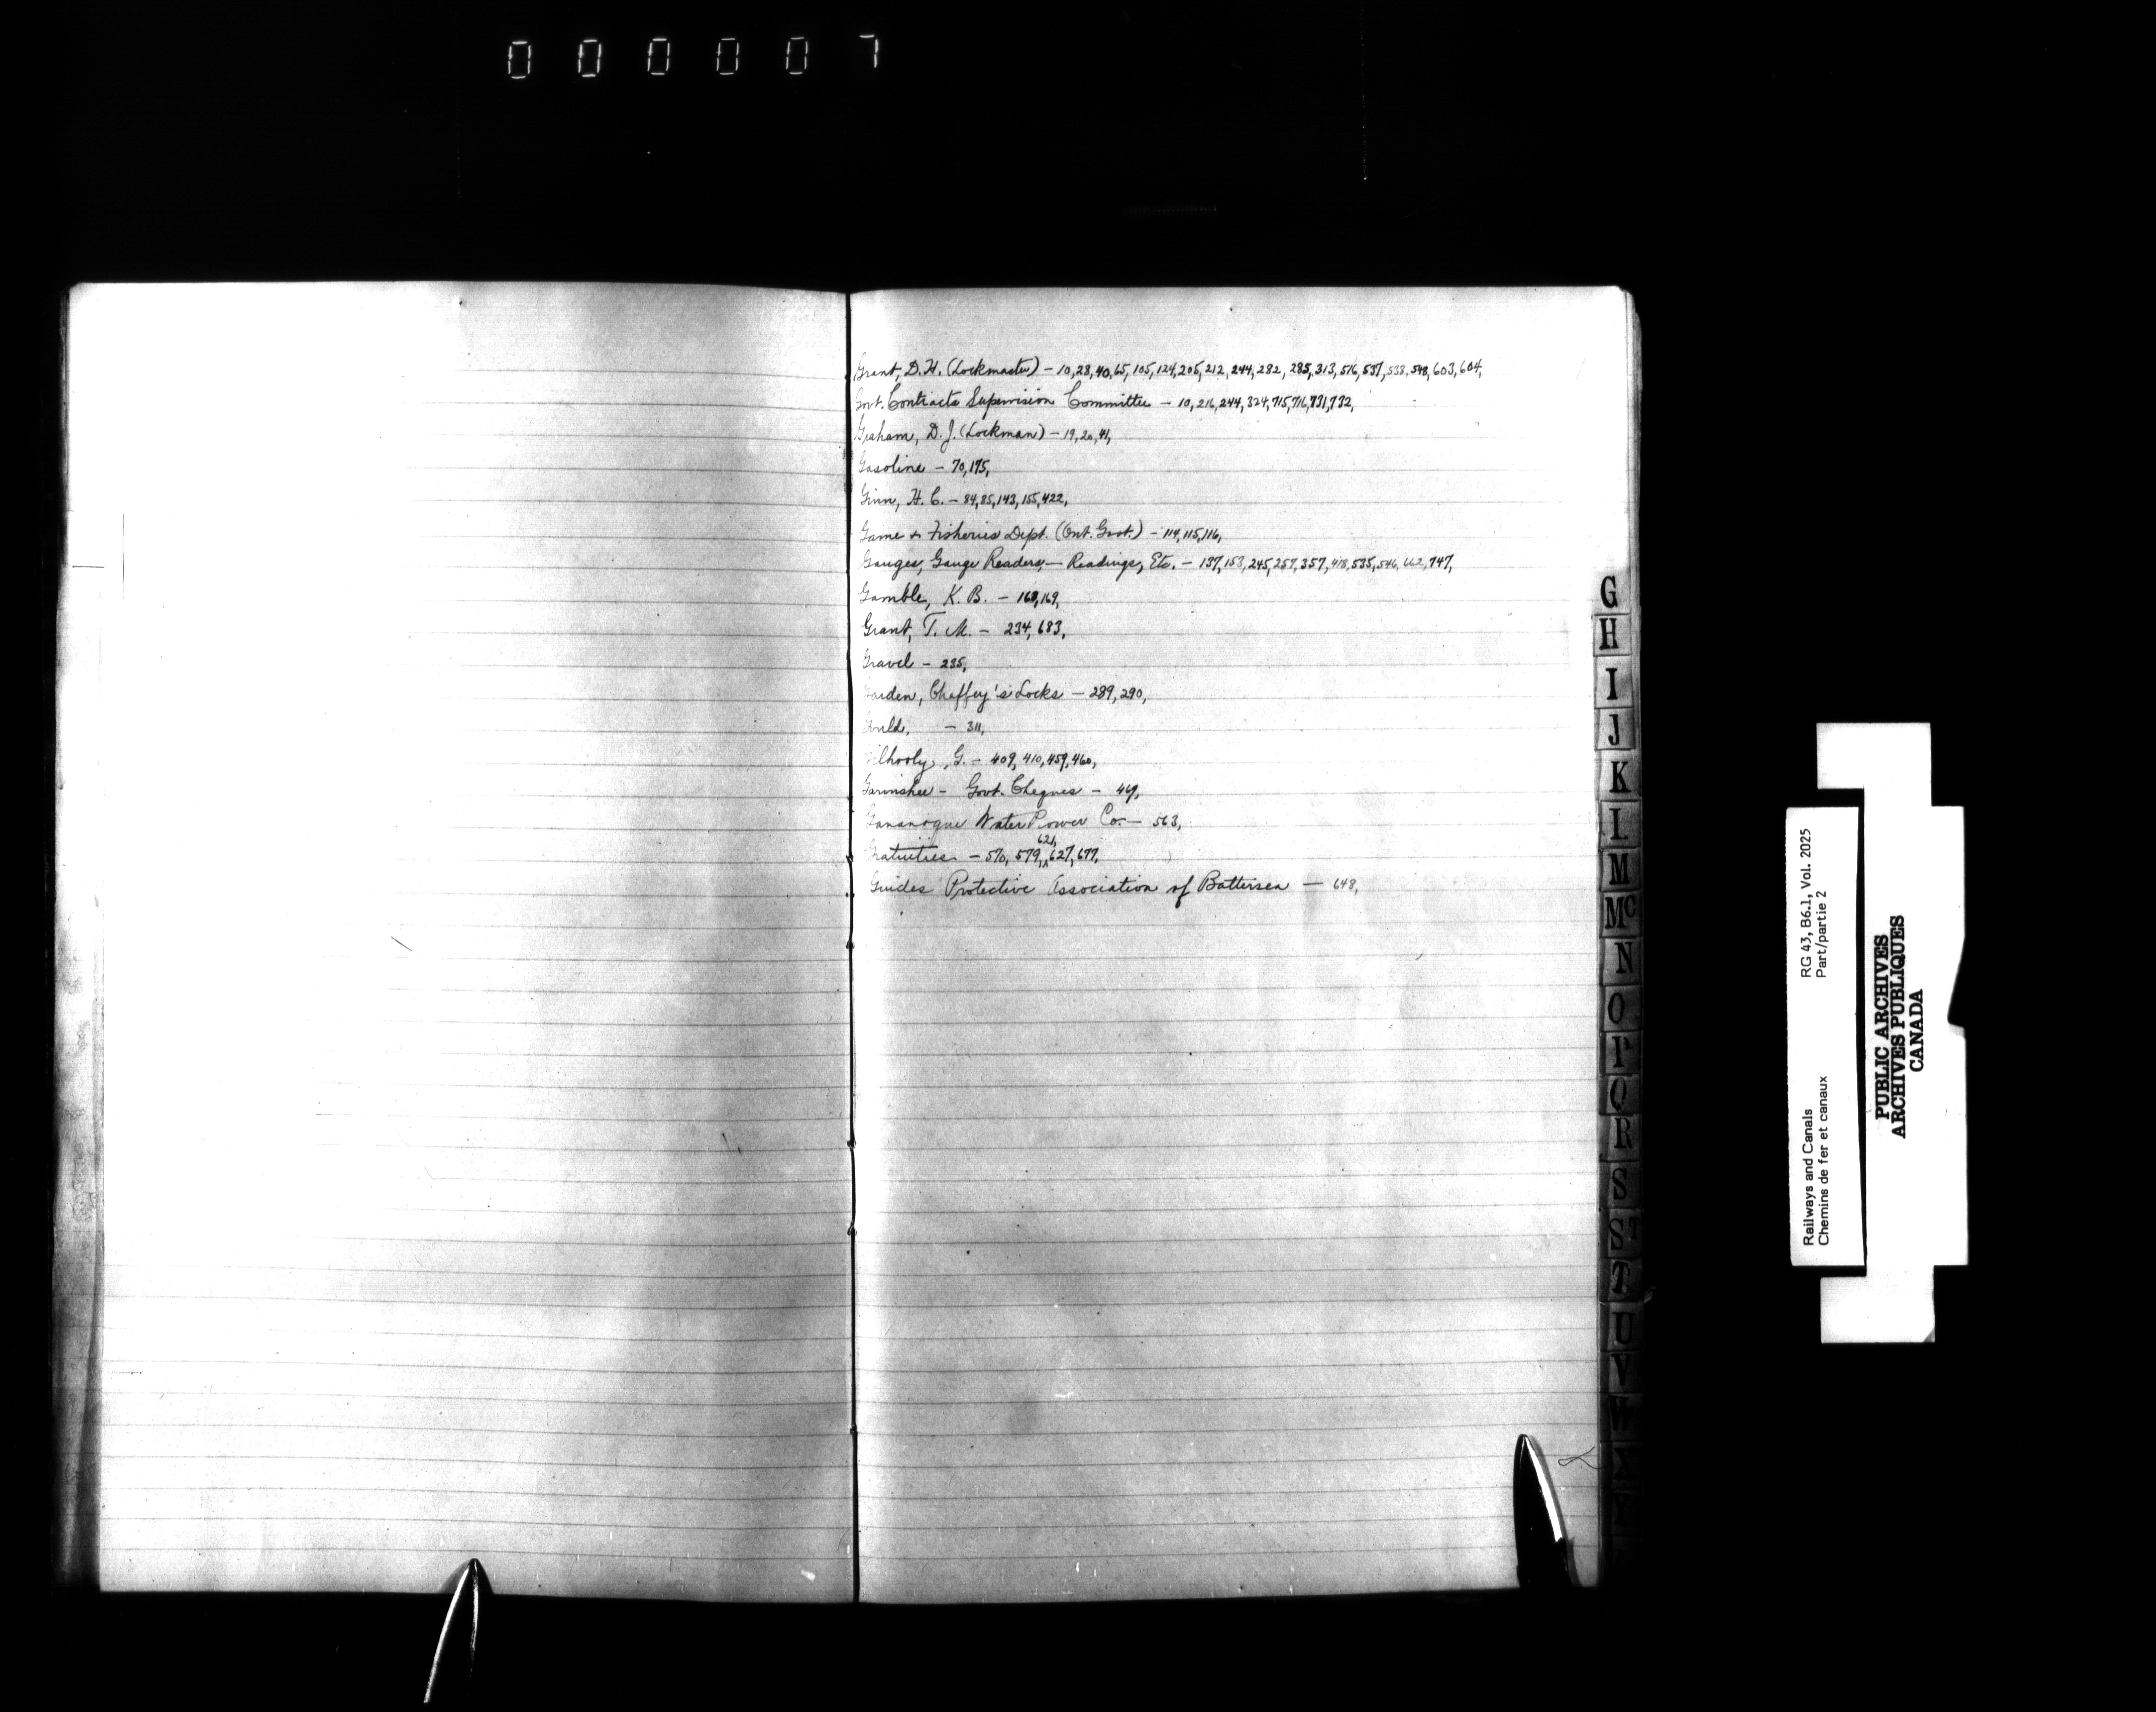 000007
Grant, D.H. (Lockmaster) – 10, 28, 40, 65, 105, 124, 205, 212, 244, 282, 285, 313, 516, 537, 538, 548, 603, 604,
Govt. Contracts Supervision Committee – 10, 216, 244, 324, 715, 716, 731, 732,
Graham, D.J. (Lockman) – 19, 20, 41,
Gasoline – 70, 175,
Ginn, H.C. – 84, 85, 143, 155, 422,
Game & Fisheries Dept. (Ont. Govt.) – 114, 115, 116,
Gauges, Gauge Readers, – Readings, Etc. – 137, 158, 245, 257, 357, 418, 535, 546, 662, 747,
Gamble, K.B. – 168, 169,
Grant, T.M. – 234, 683,
Gravel – 235,
Garden, Chaffey's Locks – 289, 290,
Gould, – 311,
Gilhooly, G. – 409, 410, 459, 460,
Garinshee – Govt. Cheques – 469,
Gananoque Water Power Co. – 563,
Gratuities – 570, 579, 621, 627, 677,
Guides Protective Association of Battersea – 648,
G
H
I
J
K
L
M
Mc
N
O
P
Q
R
S
ST
T
U
V
W
RG 43, B6.1, Vol. 2025
Part/partie 2
Railways and Canals
Chemins de fer et canaux
PUBLIC ARCHIVES
ARCHIVES PUBLIQUES
CANADA